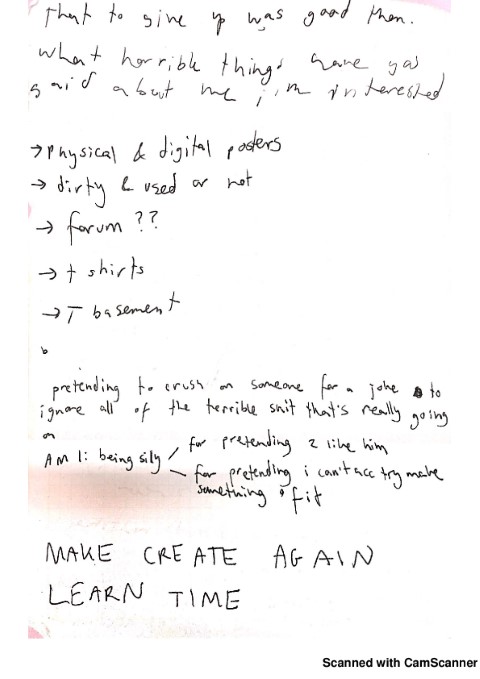 that to give up was good then.
what horrible things have yas
said about me i'm interested
→ physical & digital posters
→ dirty & used or not
→ forum ??
→ t shirts
→ T basement
b
pretending to crush on someone for a joke to
ignore all of the terrible shit that's really going
on
AM I: being silly / for pretending 2 like him
for pretending i can't acc try make
something fit
MAKE CREATE AGAIN
LEARN TIME
Scanned with CamScanner